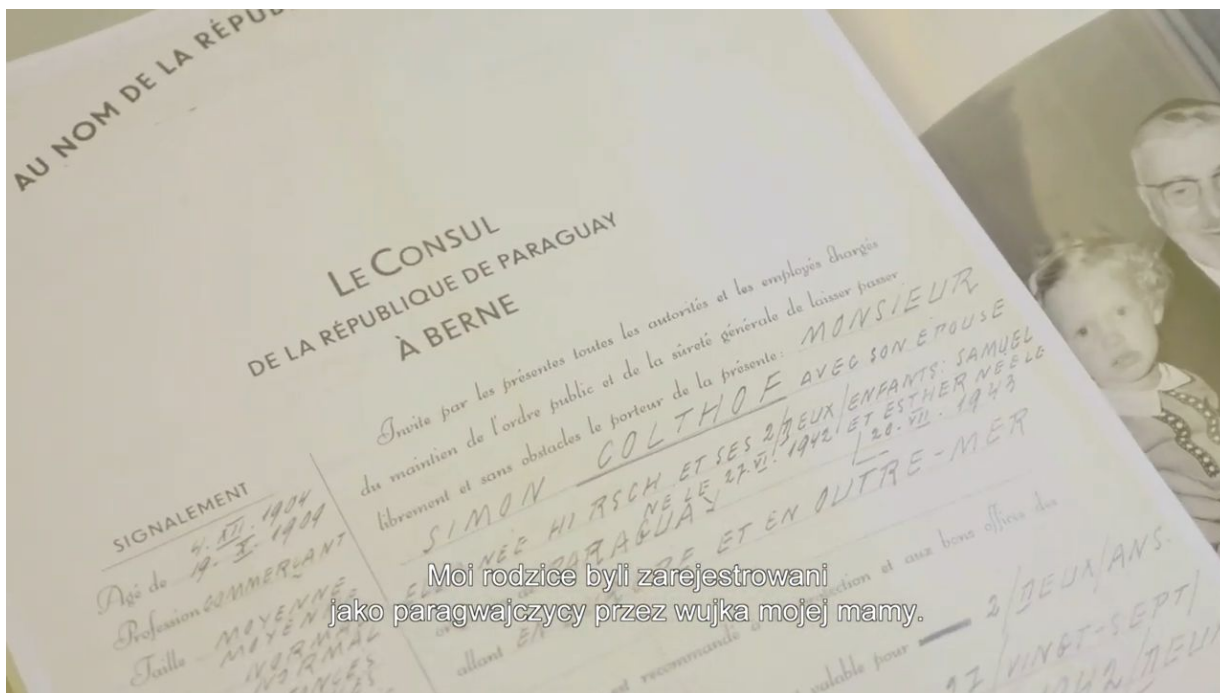 AU NOM DE LA RÉPU
LE CONSUL
DE LA RÉPUBLIQUE DE PARAGUAY
À BERNE
Invite par les présentes toutes les autorités et les employés chargés
du maintien de l'ordre public et de la sûreté générale de laisser passer
librement et sans obstacles le porteur de la présente: MONSIEUR
SIMON COLTHOF AVEC SON EPOUSE
NEE HIRSCH ET SES 2/DEUX/ENFANTS: SAMUEL
NE LE 27.VI.1942/ET ESTHER NEE LE
20.VII.1943
PARAGUAY
allant EN ET EN OUTRE-MER
est recommandé à ection et aux bons offices des
valable pour 2/DEUX/ANS.
27/VINGT-SEPT/
SIGNALEMENT
Agé de 4.XII.1904
19.X.1909
Profession COMMERÇANT
Taille MOYENNE
MOYENNE
NORMAL
NORMAL
Moi rodzice byli zarejestrowani
jako paragwajczycy przez wujka mojej mamy.